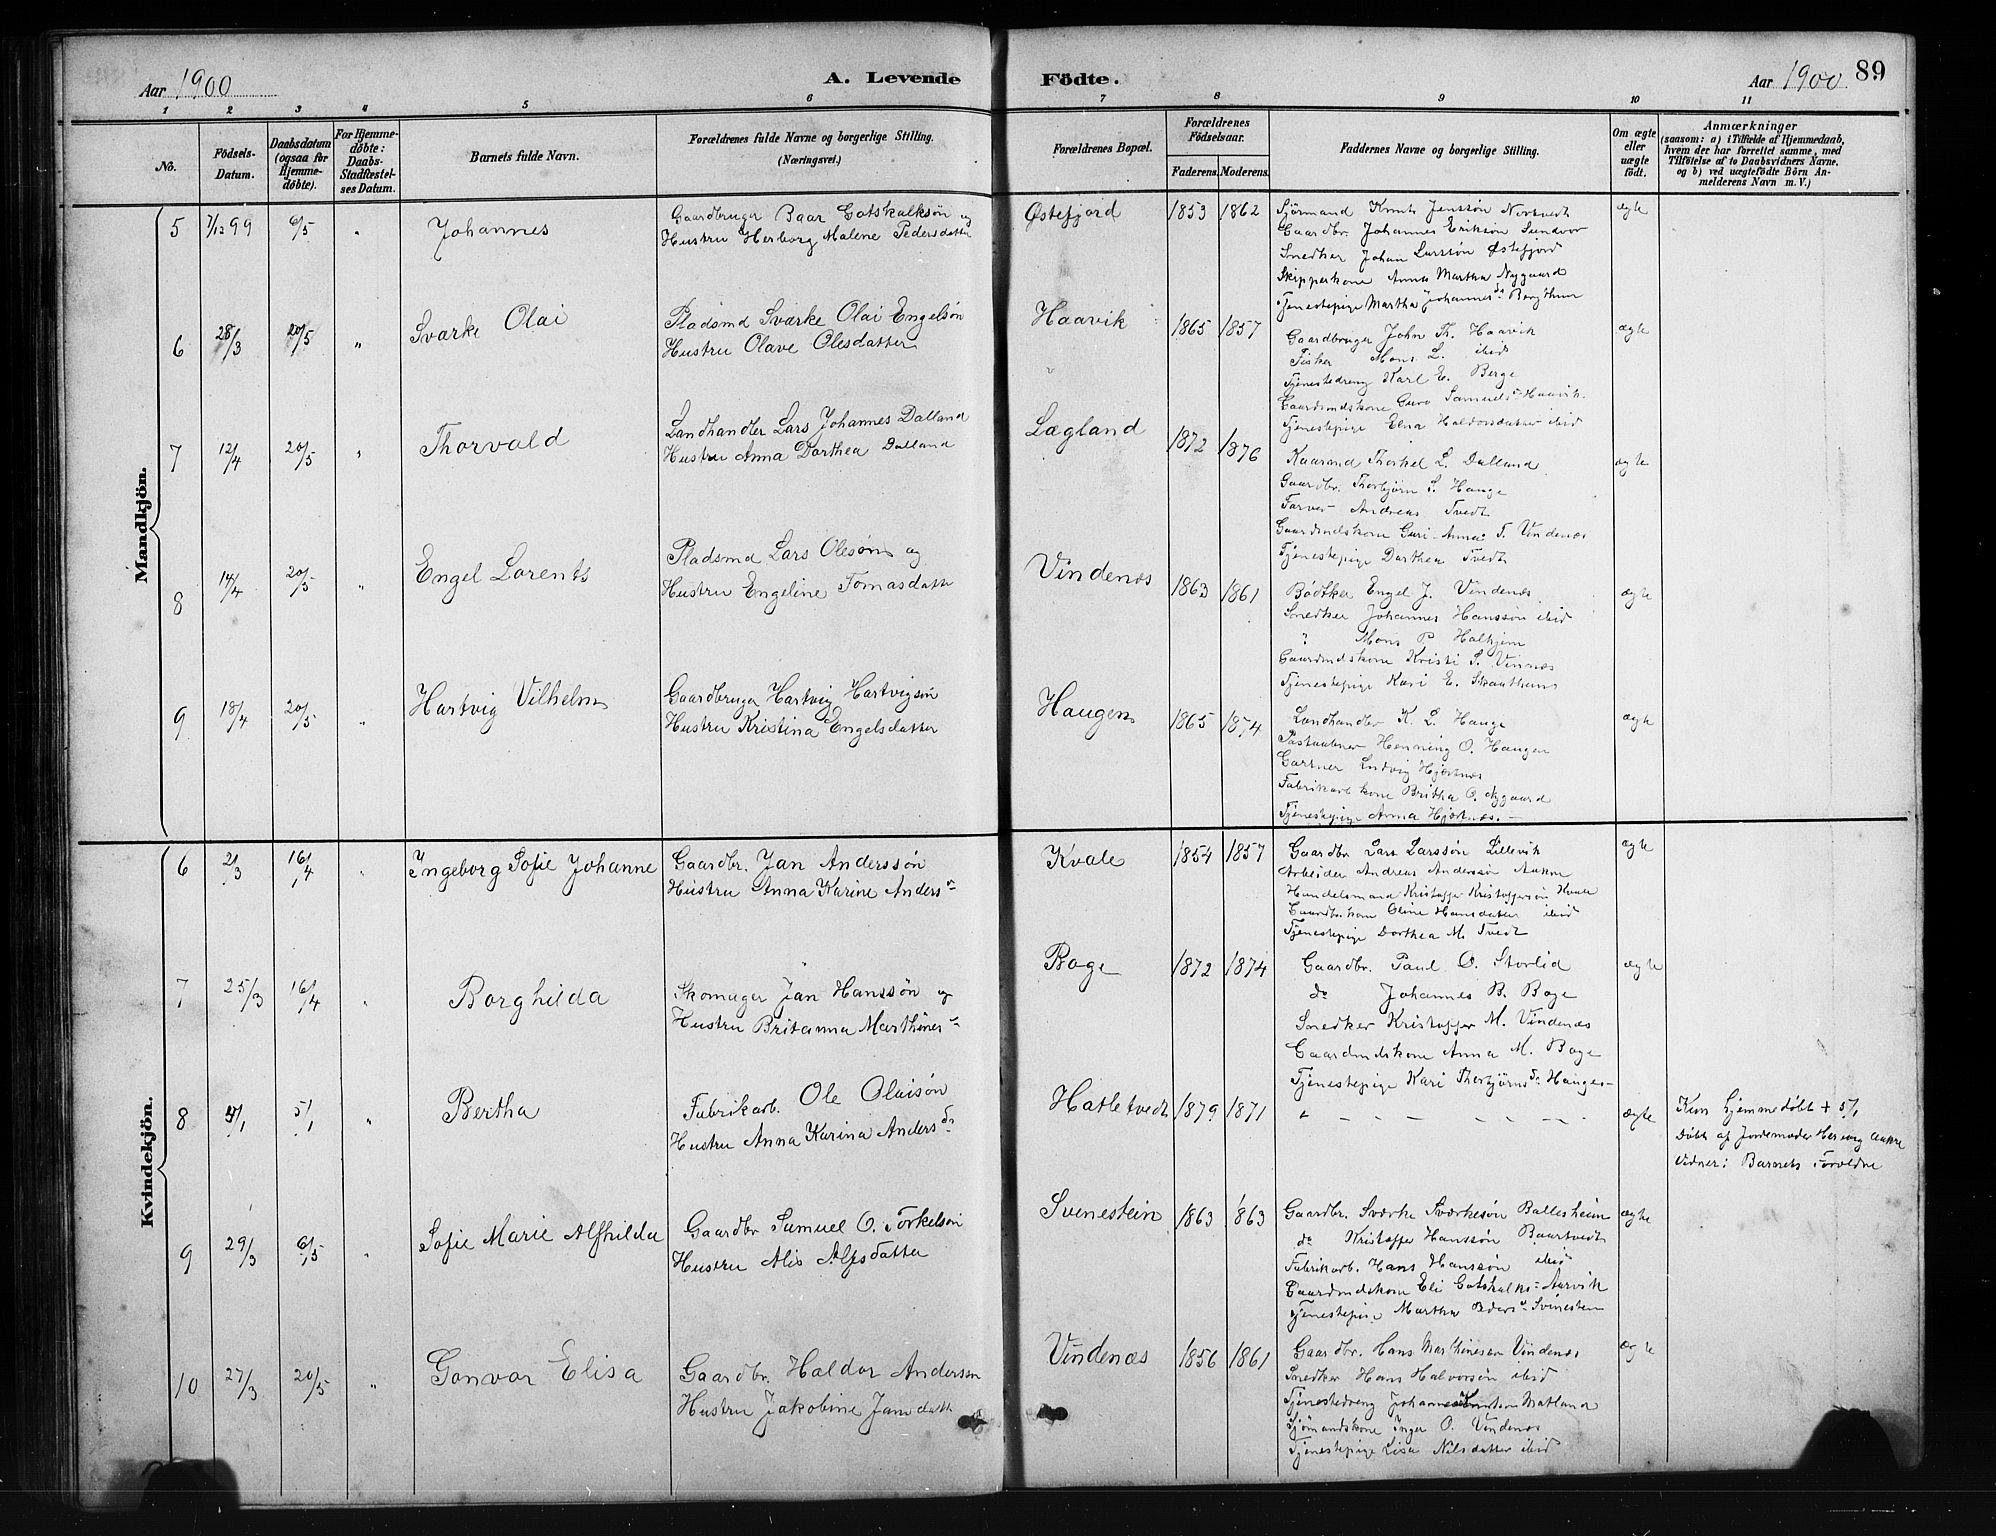 Aar 1900
A. Levende
Födte.
Aar 1900
89
1 2 3 4 5 6 7 8 9 10 11
No.
Födsels-
Datum.
Daabsdatum
(ogsaa for
Hjemme-
döbte).
For Hjemme-
döbte:
Daabs-
Stadfæstel-
ses Datum.
Barnets fulde Navn.
Forældrenes fulde Navne og borgerlige Stilling.
(Næringsvei.)
Forældrenes Bopæl.
Forældrenes
Födselsaar.
Faderens. Moderens.
Faddernes Navne og borgerlige Stilling.
Om ægte
eller
uægte
födt.
Anmærkninger
(saasom: a) i Tilfælde af Hjemmedaab,
hvem der har forrettet samme, med
Tilföielse af to Daabsvidners Navne.
og b) ved uægtefödte Börn An-
melderens Navn m. V.)
Mandkjön.
5 7/12 99 6/5 " Johannes
Gaardbruger Baar Gotskalksøn og
Hustru Herborg Malene Pedersdatter
Østefjord 1853 1862
Sjømand Knut Jenssøn Nersvedt
Gaardbr. Johannes Erikson Sundvor
Snedker Johan Larssøn Østefjord
Skipperkone Anna Martha Nygaard
Tjenestepige Martha Johannesda Bergthun
ægte
6 28/3 20/5 " Sværke Olai
Pladsmd Sværke Olai Engelsøn
Hustru Olave Olesdatter
Haavik 1865 1857
Gaardbruger John Th. Haavik
Fisker Mons L. ibid
Tjenestedreng Karl E. Berge
Gaardmdskone Guro Samuelsd Haavik.
Tjenestepige Elna Haldorsdatter ibid
ægte
7 12/4 20/5 " Thorvald
Landhandler Lars Johannes Dalland
Hustru Anna Dorthea Dalland
Lægland 1872 1876
Kaarmd Thorkel L. Dalland
Gaardbr. Thorbjørn S. Hauge
Farver Andreas Tvedt
Gaardmdskone Guri Anna T. Vindenæs
Tjenestepige Dorthea Tvedt
ægte
8 14/4 20/5 " Engel Lorents
Pladsmd Lars Olesøn og
Hustru Engeline Tomasdatter
Vindenæs 1863 1861
Bødtker Engel J. Vindenæs
Snedker Johannes Hanssøn ibid
" Mons P. Halhjem
Gaardmdskone Kristi S. Vinnæs
Tjenestepige Kari E. Skaathun
ægte
9 18/4 20/5 " Hartvig Vilhelm
Gaardbruger Hartvig Hartvigsøn
Hustru Kristina Engelsdatter
Haugen 1865 1874
Landhandler K. L. Hauge
Postaabner Henning O. Haugen
Gartner Ludvig Hjørtnæs
Fabrikarb kone Britha O. Nygaard
Tjenestepige Anna Hjørtnæs.
ægte
Kvindekjön.
6 2/3 16/4 " Ingeborg Sofie Johanne
Gaardbr. Jan Anderssøn
Hustru Anna Karine Andersda
Kvale 1854 1857
Gaardbr Lars Larssøn Lillevik
Arbeider Andreas Anderssøn
Handelsmand Kristoffer Kristoffersøn Kvale
Gaardbr.kone Oline Hansdatter ibid
Tjenestepige Dorthea M. Tvedt
ægte
7 25/3 16/4 " Borghilda
Skomager Jan Hanssøn og
Hustru Britanna Marthinesda
Boge 1872 1874
Gaardbr. Paul O. Storlid
do Johannes B. Boge
Snedker Kristoffer M. Vindenæs
Gaardmdskone Anna M. Boge
Tjenestepige Kari Thorbjørnsda Hauge
ægte
8 4/1 5/1 " Bertha
Fabrikarb. Ole Olaisøn
Hustru Anna Karina Andersda
Hatletvedt 1879 1871
" – – – – – –
ægte
Kun hjemmedøbt + 5/1
Døbt af Jordemoder Herborg
Vidner: Barnets Forældre
9 29/3 6/5 " Sofie Marie Alfhilda
Gaardbr Samuel O. Torkelsøn
Hustru Alis Alfsdatter
Svenestein 1863 1863
Gaardbr. Sværke Sværkesøn Ballesheim
do Kristoffer Hanssøn Baartvedt
Fabrikarb. Hans Hanssøn ibid
Gaardmdskone Eli Gotskalksd Aarvik
Tjenestepige Martha Svinestein
ægte
10 27/3 20/5 " Gonvor Elisa
Gaardbr. Haldor Anderssøn
Hustru Jakobine Jansdatt
Vindenæs 1856 1861
Gaardbr. Hans Mathinesøn Vindenæs
Snedker Hans Halvorsøn ibid
Tjenestedreng Johannes Matland
Sjømandskone Inger O. Vindenæs
Tjenestepige Lisa Nilsdatter ibid
ægte